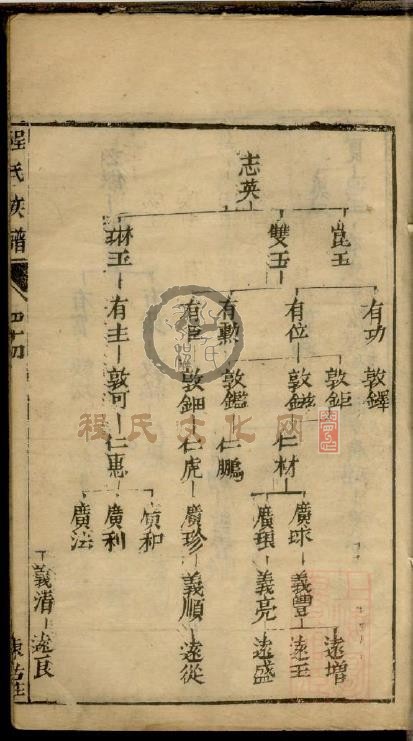 志英
崑玉
雙玉
琳玉
有功
有位
有勳
有臣
有主
敦鐸
敦鉅
敦鎡
敦鑑
敦鈿
敦可
仁材
仁鵬
仁虎
仁惠
廣球
廣珢
廣珍
廣和
廣利
廣法
義豐
義亮
義順
義清
遠增
遠玉
遠盛
遠從
遠良
程氏族譜
程氏文化网